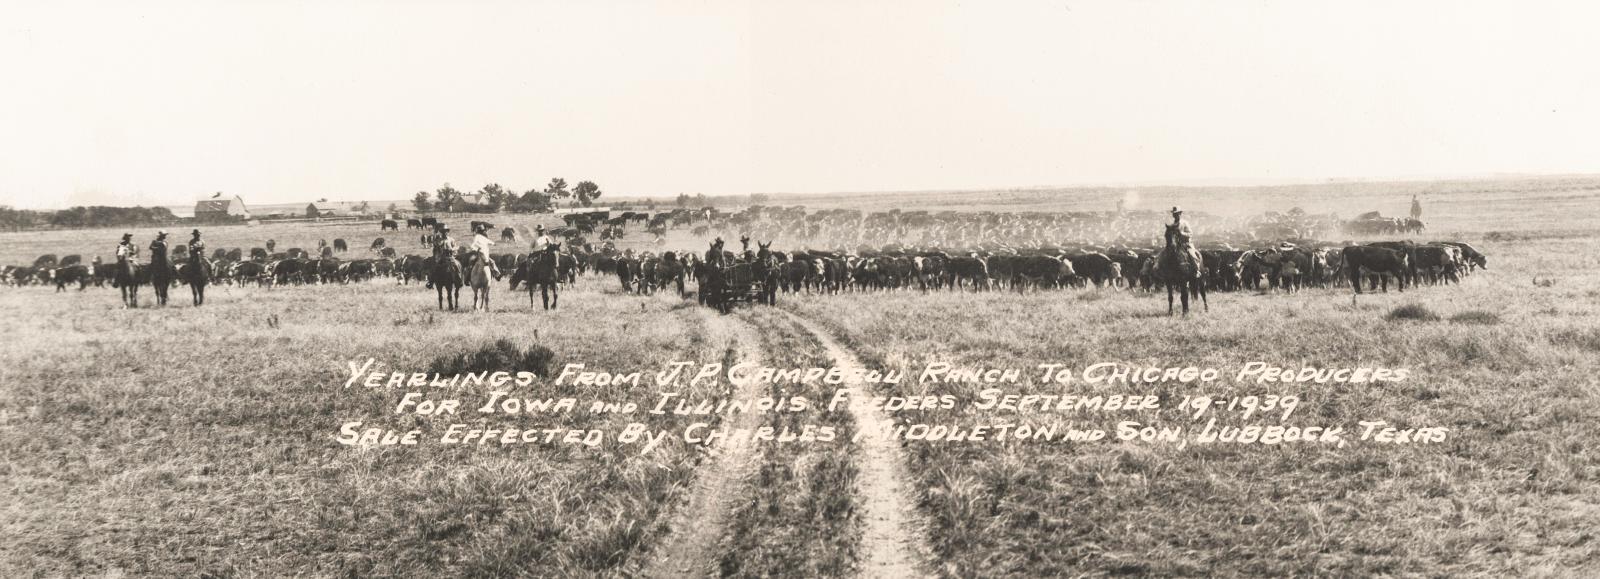 Yearlings From J.P. Campbell Ranch To Chicago Producers
For Iowa and Illinois Feeders September 19-1939
Sale Effected By Charles Middleton and Son, Lubbock, Texas